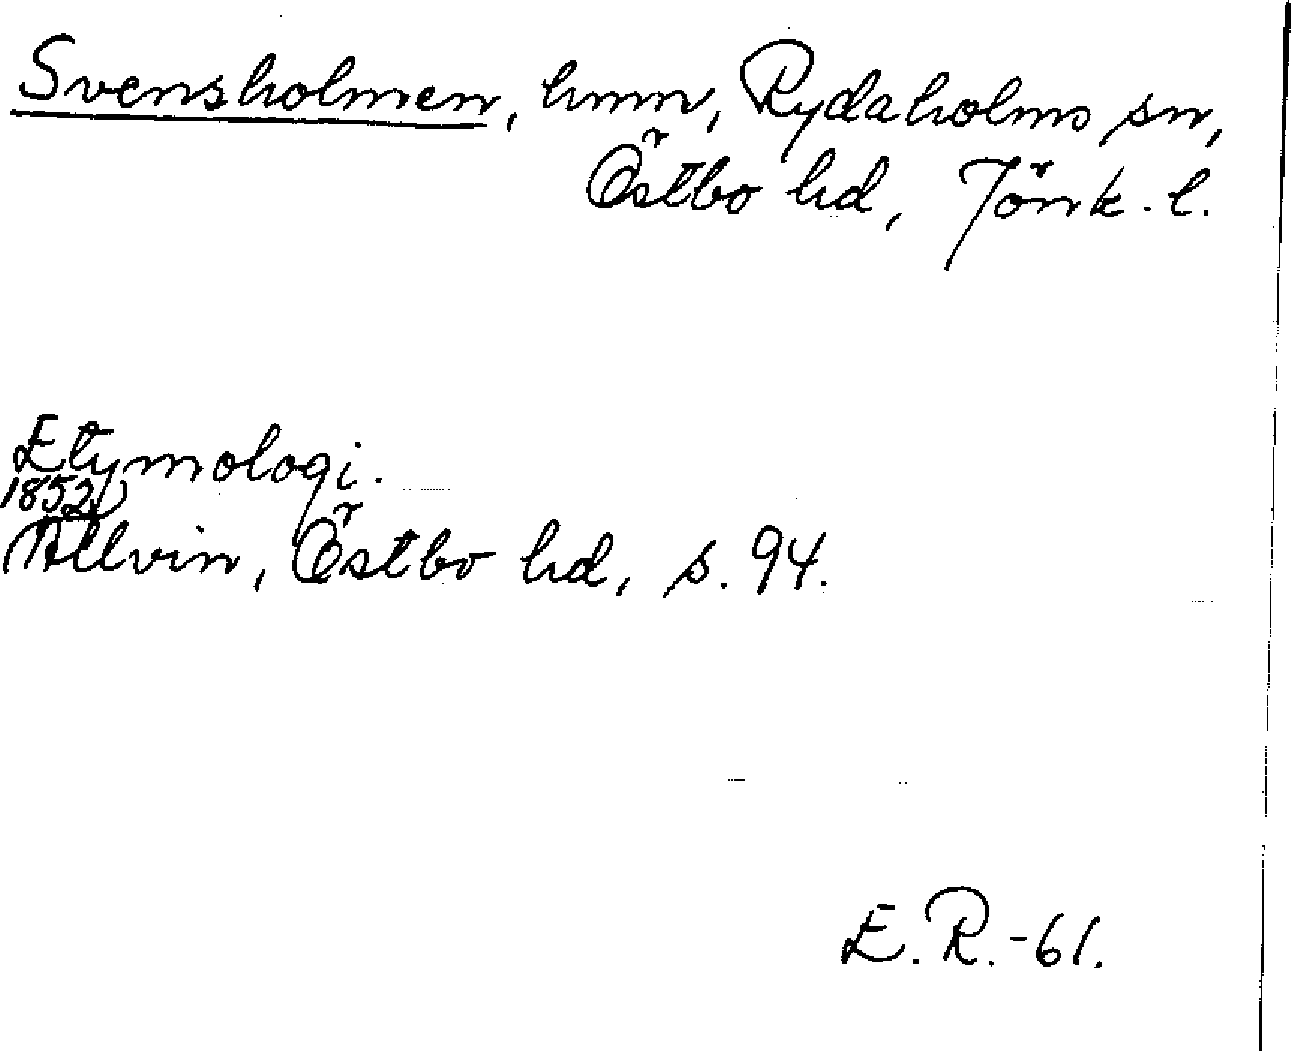 Svensholmen, hmn, Rydaholms sn,
Östbo hd, Jönk. l.
Etymologi.
1852
Allvin, Östbo hd, s. 94.
E. R. -61.